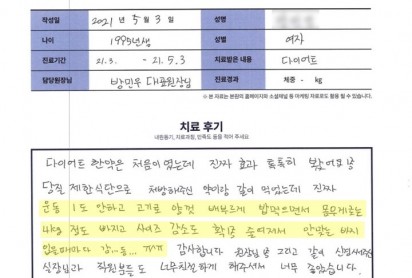 작성일 2021 년 5 월 3 일 성명
나이 1995년생 성별 여자
진료기간 21.3. ~ 21.5.3 치료받은 내용 다이어트
담당원장님 방민우 대표원장님 진료경과 체중 - kg
※ 본 자료는 본원의 홈페이지와 소셜채널 등 마케팅 자료로도 활용 될 수 있습니다.
치료 후기
내원동기, 치료과정, 만족도 등을 적어 주세요
다이어트 한약은 처음이였는데 진짜 효과 톡톡히 봤어요!
당질 제한식단으로 처방해주신 약이랑 같이 먹었는데 진짜
운동 1도 안하고 고기로 양껏 배부르게 밥먹으면서 몸무게로는
4kg 정도 빠지고 사이즈 감소도 확 줄어져서 안맞는 바지
입을때마다 감..동.. ㅠㅠ 감사합니다 원장님 그리고 같이 신경써주신
실장님과 직원분들도 너무친절하게 해주셔서 너무 좋았습니다.